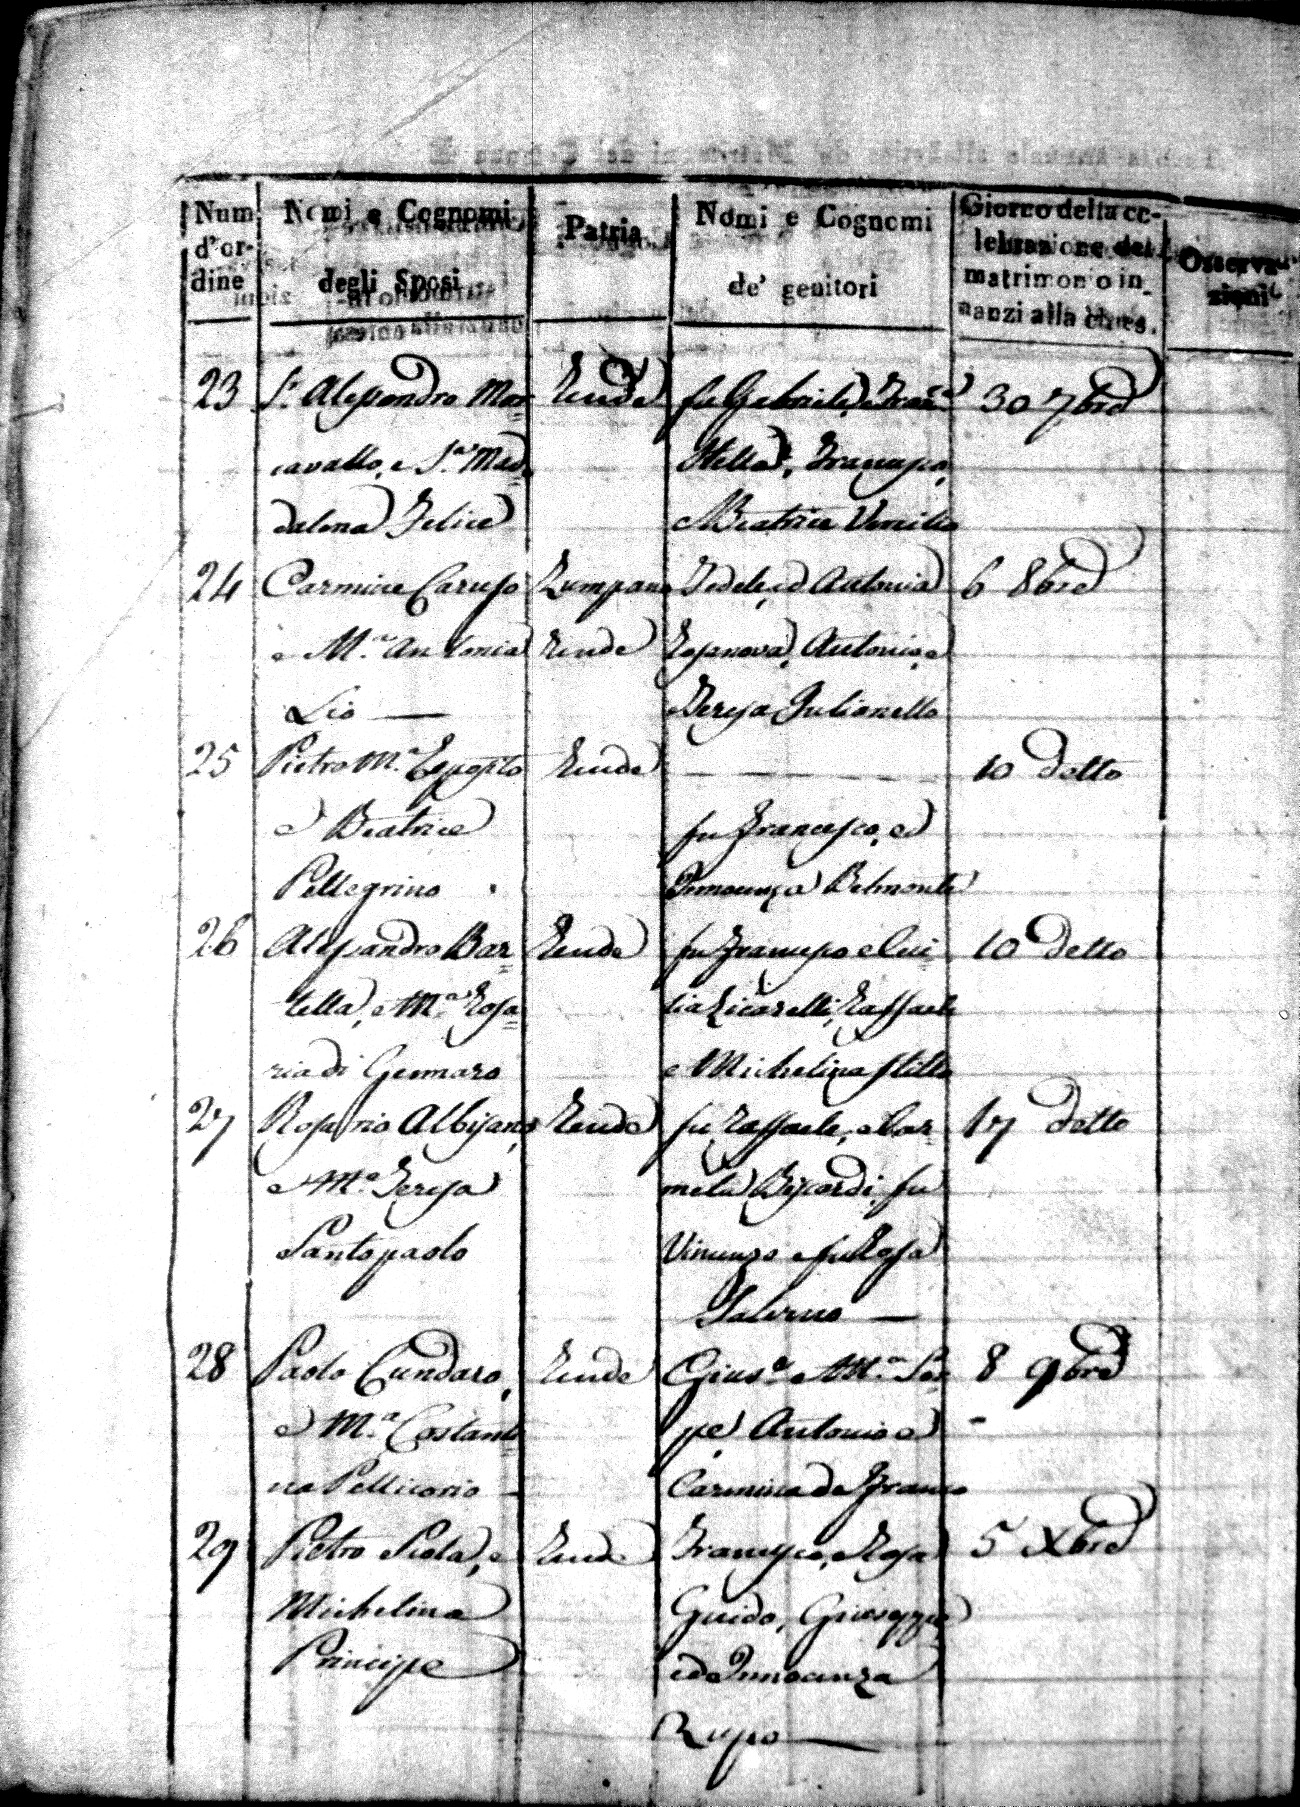 Num. d'ordine
Nomi e Cognomi degli Sposi
Patria
Nomi e Cognomi de' genitori
Giorno della celebrazione del matrimonio innanzi alla chies.
Osservazioni
23 S.r Alessandro Mar= Rende fu Gabriele, e Fran.ca 30 7bre
cavallo, e S.a Mad= Stella, Francesco,
dalena Felice e Beatrice
24 Carmine Caruso Zumpano Fedele, ed Antonia 6 8bre
e M.a Antonia Rende Antonio, e
Lio — Teresa Julianello
25 Pietro M.a Esposito Rende — — — 10 detto
e Beatrice fu Francesco, ed
Pellegrino Innocenza Belmonte
26 Alessandro Bar= Rende fu Francesco e Lui 10 detto
tella, e M.a Rosa= Raffaele
ria di Gennaro e Michelina Stilla
27 Rosario Albisano, Rende fu Raffaele, e Car= 17 detto
e M.a Teresa mela Biscardi, fu
Santopaolo Vincenzo e fu Rosa
Salerno —
28 Paolo Cundaro, Rende Gius.e e M.a 8 9bre
e M.a Costan= Antonio e
na Pellicorio Carmina de Franco
29 Pietro Scola, e Rende Francesco, e Rosa 5 Xbre
Michelina Guido, Giuseppe
Principe ed Innocenza
Russo —